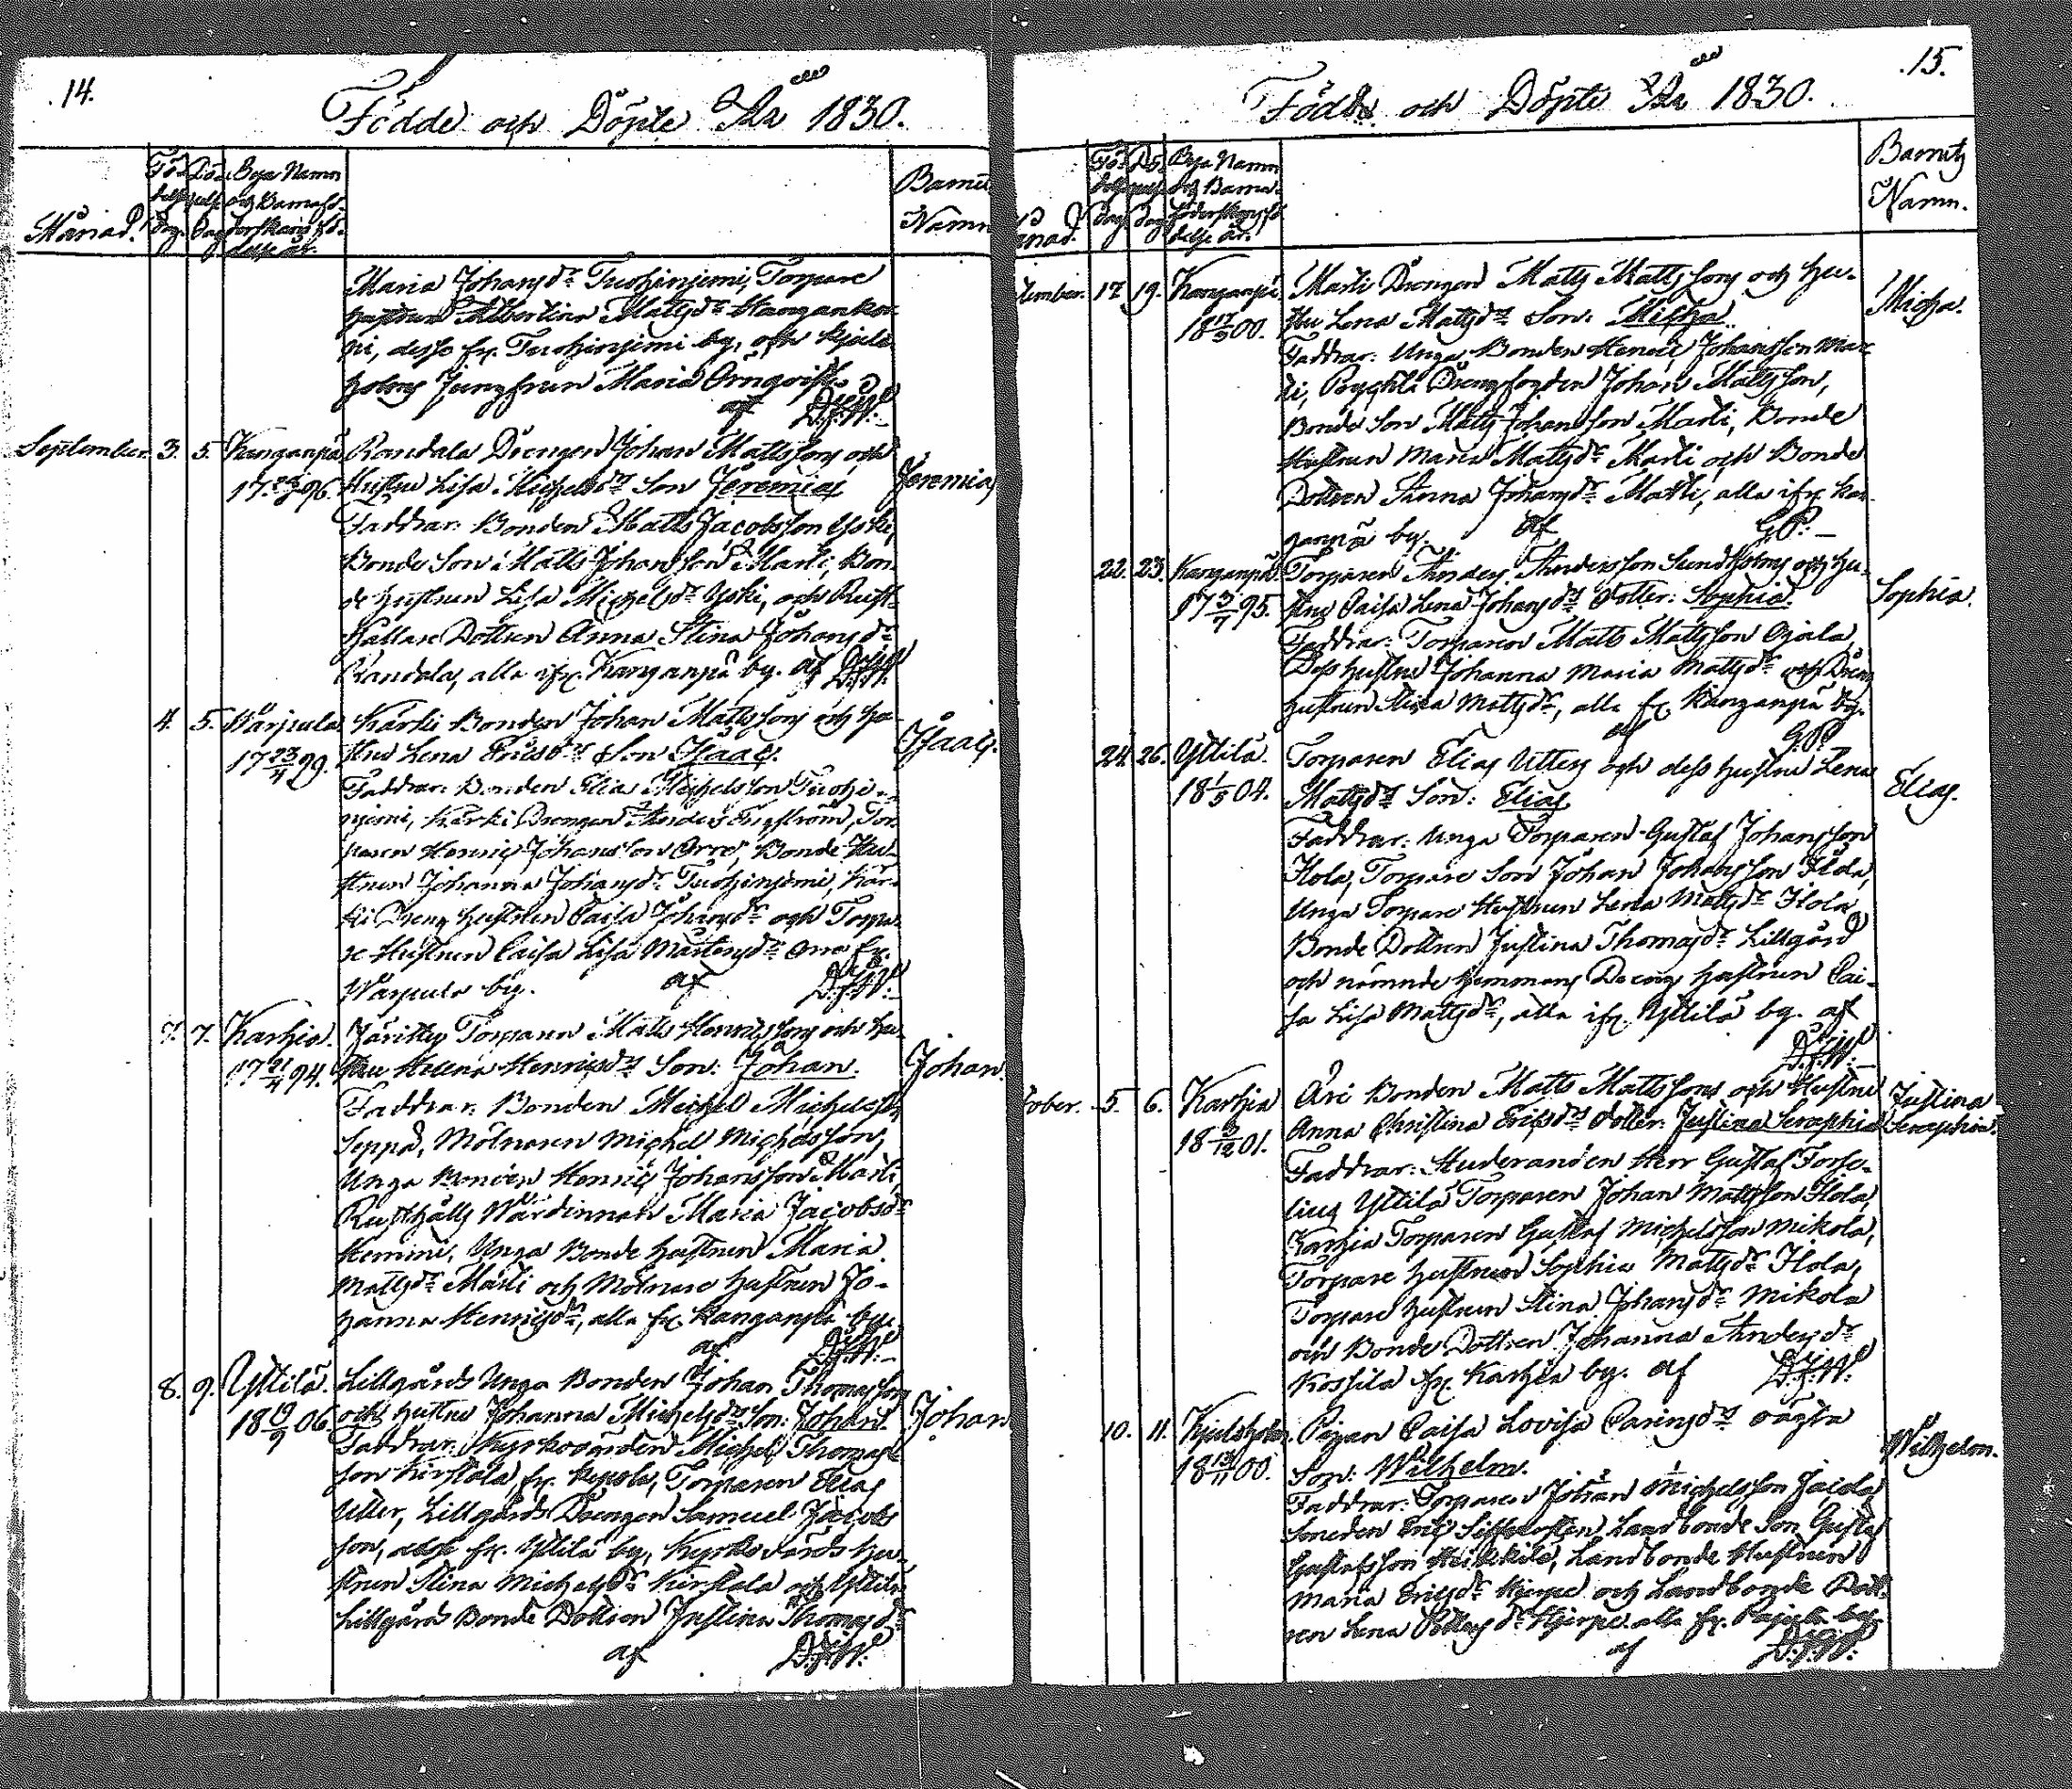 .14.
Födde och Döpte År 1830.
Månad.
Födelse Dag.
Döpelse Dag
Bya Namn
och Barnaföderskans födelse år.
Barnets
Namn
Maria Johansdr Tuohinjemi, Torpare
hustrun Albertina Matsdr Hangankoski, desse fr. Tuohinjemi by, och Kjuleholms Jungfrun Maria Örnqvist.
af D.f.W.
September. 3. 5. Kanganpä Randala Drengen Johan Mattssons och
1796. Hustru Lisa Michelsdrs Son Jeremias Jeremias
Faddrar: Bonden Matts Jacobsson Yski,
Bonde Son Matts Johansson Marti, Bonde hustrun Lisa Michelsdr Yski, och Rusthållare Dottren Anna Stina Johansdr
Randala, alla ifr. Kanganpä by. af D.f.W.
4. 5. Wärpula Kärki Bonden Johan Mattssons och hu-
17 23/4 99. stru Lena Ericsdrs Son Isaac. Isaac.
Faddrar: Bonden Elia Michelsson Tuohi-
njemi, Kärki Drengen Anders Engström, Tor-
paren Henric Johansson Orre, Bonde Hu-
strun Johanna Johansdr Tuohinjemi, Kär-
ki Dreng hustrun Caisa Johansdr och Torpa-
re Hustrun Caisa Lisa Mårtensdr Orre fr.
Wärpula by. af D.f.W.
7. 7. Karhia. Torparen Matts Henricssons och hu-
17 21/4 94. stru Helena Henricsdrs Son: Johan. Johan.
Faddrar: Bonden Michel Michelsson
Seppä, Mölnaren Michel Michelsson,
Unga Bonden Henric Johansson Marti,
Rusthålls Wärdinnan Maria Jacobsdr
Hemmi, Unga Bonde hustrun Maria
Mattsdr Marti och Mölnare hustrun Jo-
hanna Henricsdr, alla fr. Kanganpä by.
af D.f.W.
8. 9. Yttilä. Lillgårds Unga Bonden Johan Thomassons
18 19/9 06. och hustru Johanna Michelsdrs Son: Johan. Johan
Faddrar: Kyrkovärden Michel Thomas-
son Kirstala, fr. Kepola, Torparen Elias
Utter, Lillgårds Drengen Samuel Jacobs
son, desse fr. Yttilä by, Kyrkovärds hu-
strun Stina Michelsdr Kirstala och Yttilä
Lillgårds Bonde Dottren Justina Thomasdr
af D.f.W.
.15.
Födde och Döpte År 1830.
Dag. Dag
Bya Namn
och Barnaföderskans födelse år.
Barnets
Namn.
tember. 17. 19. Kanganpä Marti Drengen Matts Mattssons och hu-
1800. stru Lena Matsdrs Son: Micha. Micha.
Faddrar: Unga Bonden Henric Johansson Mar-
ti, Drengfogden Johan Mattsson,
Bonde Son Matts Johansson Marti, Bonde
Hustrun Maria Matsdr Marti och Bonde
Dottren Anna Johansdr Marti, alla ifr. Kan-
ganpä by. af G.P.
22. 23. Kanganpä Torparen Anders Andersson Sundholms och hu-
17 3/7 95. stru Caisa Lena Johansdrs Dotter: Sophia. Sophia.
Faddrar: Torparen Matts Mattsson Ojala,
Dess hustru Johanna Maria Matsdr och Dreng
hustrun Stina Matsdr, alla fr. Kanganpä by.
af G.P.
24. 26. Yttilä. Torparen Elias Utters och dess hustru Lena
18 1/5 04. Matsdrs Son: Elias Elias.
Faddrar: Unga Torparen Gustaf Johansson
Hola, Torpare Son Johan Johansson Hola,
Unga Torpare Hustrun Lena Matsdr Hola,
Bonde Dottren Justina Thomasdr Lillgård
och nämnde hemmans Drengs hustrun Cai-
sa Lisa Matsdr, alla ifr. Yttilä by. af
D.f.W.
tober. 5. 6. Karhia Äri Bonden Matts Mattssons och Hustru Justina
18 3/12 01. Anna Christina Ericsdrs Dotter: Justina Seraphia Seraphia.
Faddrar: Studeranden Herr Gustaf Forse-
lius, Yttilä Torparen Johan Mattsson Hola,
Karhia Torparen Gustaf Michelsson Mikola,
Torpare hustrun Sophia Matsdr Hola,
Torpare hustrun Stina Johansdr Mikola
och Bonde Dottren Johanna Andersdr
Kossila fr. Karhia by. af D.f.W.
10. 11. Kjuleholm Pigan Caisa Lovisa Carinsdrs oägta
18 13/11 00. Son: Wilhelm. Wilhelm.
Faddrar: Torparen Johan Michelsson Jaicola,
Smeden Eric Landbonde Son Gustaf
Gustafsson Heickilä, Landbonde Hustrun
Maria Ericsdr Hjerpe och Landbonde Dott-
ren Lena Hjerpe alla fr. by.
af D.f.W.